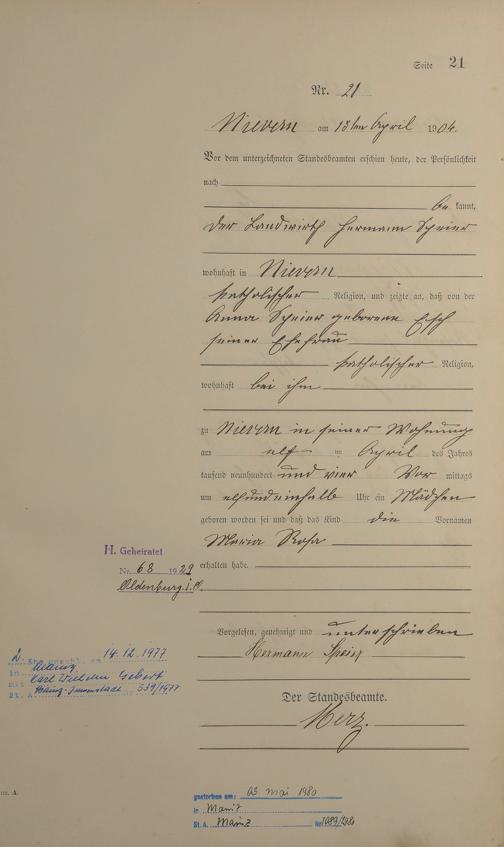 Seite 21
Nr. 21
Nievern am 13ten April 1904.
Vor dem unterzeichneten Standesbeamten erschien heute, der Persönlichkeit
nach
be kannt,
der Landwirth Hermann Speier
wohnhaft in Nievern
katholischer Religion, und zeigte an, daß von der
Anna Speier geborene Esch
seiner Ehefrau
katholischer Religion,
wohnhaft bei ihm
zu Nievern in seiner Wohnung
am elf ten April des Jahres
tausend neunhundert und vier Vor mittags
um elfundeinhalb Uhr ein Mädchen
geboren worden sei und daß das Kind die Vornamen
Maria Rosa
erhalten habe.
H. Geheiratet
Nr. 68 1929
Oldenburg i. O.
Vorgelesen, genehmigt und unterschrieben
Hermann Speier
2. Ehe 14.12.1977
in Mainz
mit Karl Wilhelm Gebert
St. A. Mainz- 539/1977
Der Standesbeamte.
Merz.
gestorben am: 03. Mai 1980
in Mainz
St. A. Mainz Nr. 1089/1980